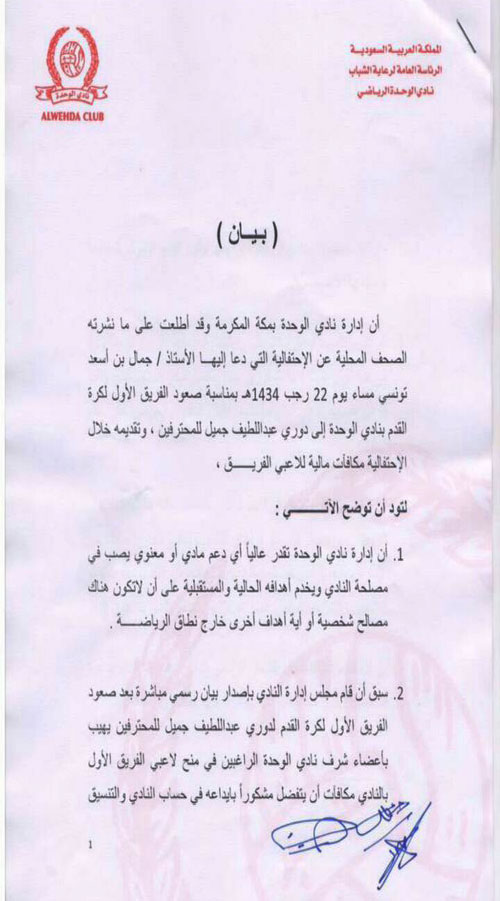 المملكة العربية السعودية
الرئاسة العامة لرعاية الشباب
نادي الوحدة الرياضي
نادي الوحدة
ALWEHDA CLUB
( بـيــان )
أن إدارة نادي الوحدة بمكة المكرمة وقد أطلعت على ما نشرته
الصحف المحلية عن الإحتفالية التي دعا إليهـا الأستاذ / جمال بن أسعد
تونسي مساء يوم 22 رجب 1434هـ بمناسبة صعود الفريق الأول لكرة
القدم بنادي الوحدة إلى دوري عبداللطيف جميل للمحترفين ، وتقديمه خلال
الإحتفالية مكافآت مالية للاعبي الفريـــق ،
لتود أن توضح الآتـــــي :
1. أن إدارة نادي الوحدة تقدر عالياً أي دعم مادي أو معنوي يصب في
مصلحة النادي ويخدم أهدافه الحالية والمستقبلية على أن لاتكون هناك
مصالح شخصية أو أية أهداف أخرى خارج نطاق الرياضـــة .
2. سبق أن قام مجلس إدارة النادي بإصدار بيان رسمي مباشرة بعد صعود
الفريق الأول لكرة القدم لدوري عبداللطيف جميل للمحترفين يهيب
بأعضاء شرف نادي الوحدة الراغبين في منح لاعبي الفريق الأول
بالنادي مكافآت أن يتفضل مشكوراً بايداعه في حساب النادي والتنسيق
1